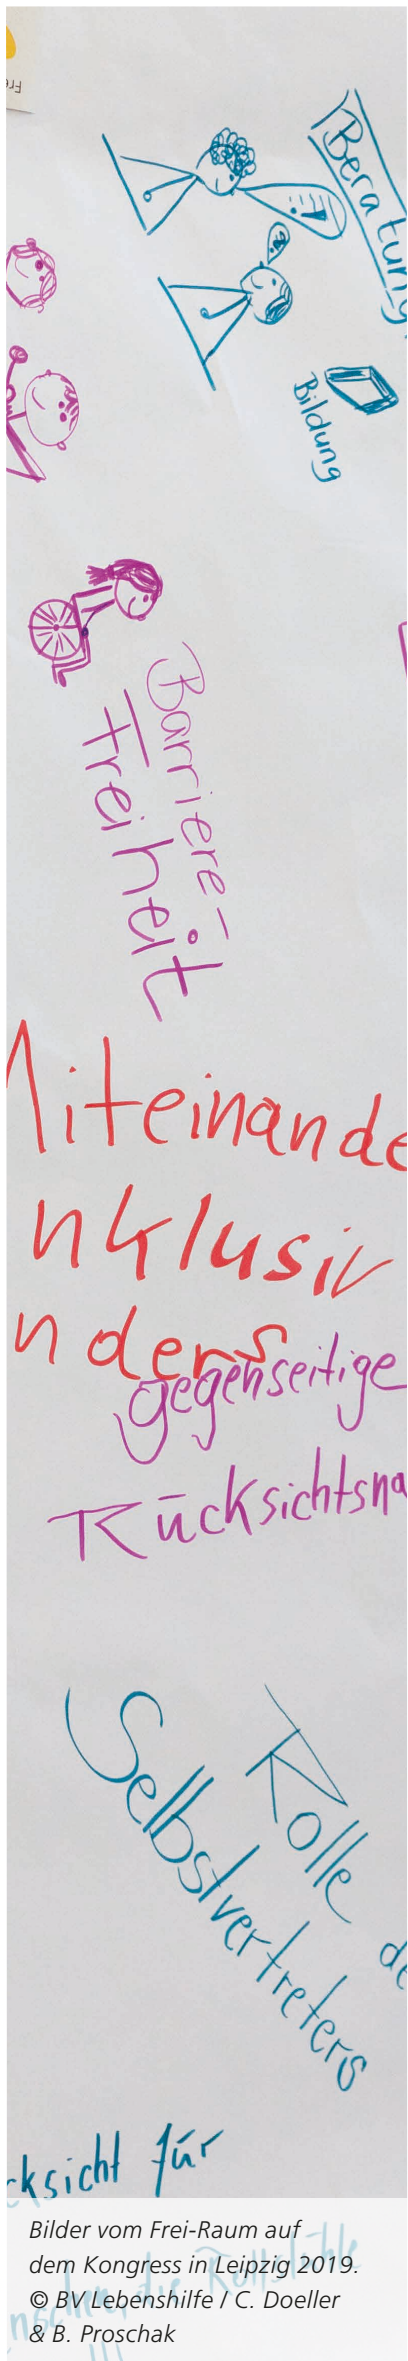 Fre
Beratung
Bildung
Barriere-
freiheit
Miteinande
nklusiv
nders
gegenseitige
Rücksichtsna
Rolle de
Selbstvertreters
cksicht für
nschen die Rollstühle
!!!
Bilder vom Frei-Raum auf
dem Kongress in Leipzig 2019.
© BV Lebenshilfe / C. Doeller
& B. Proschak